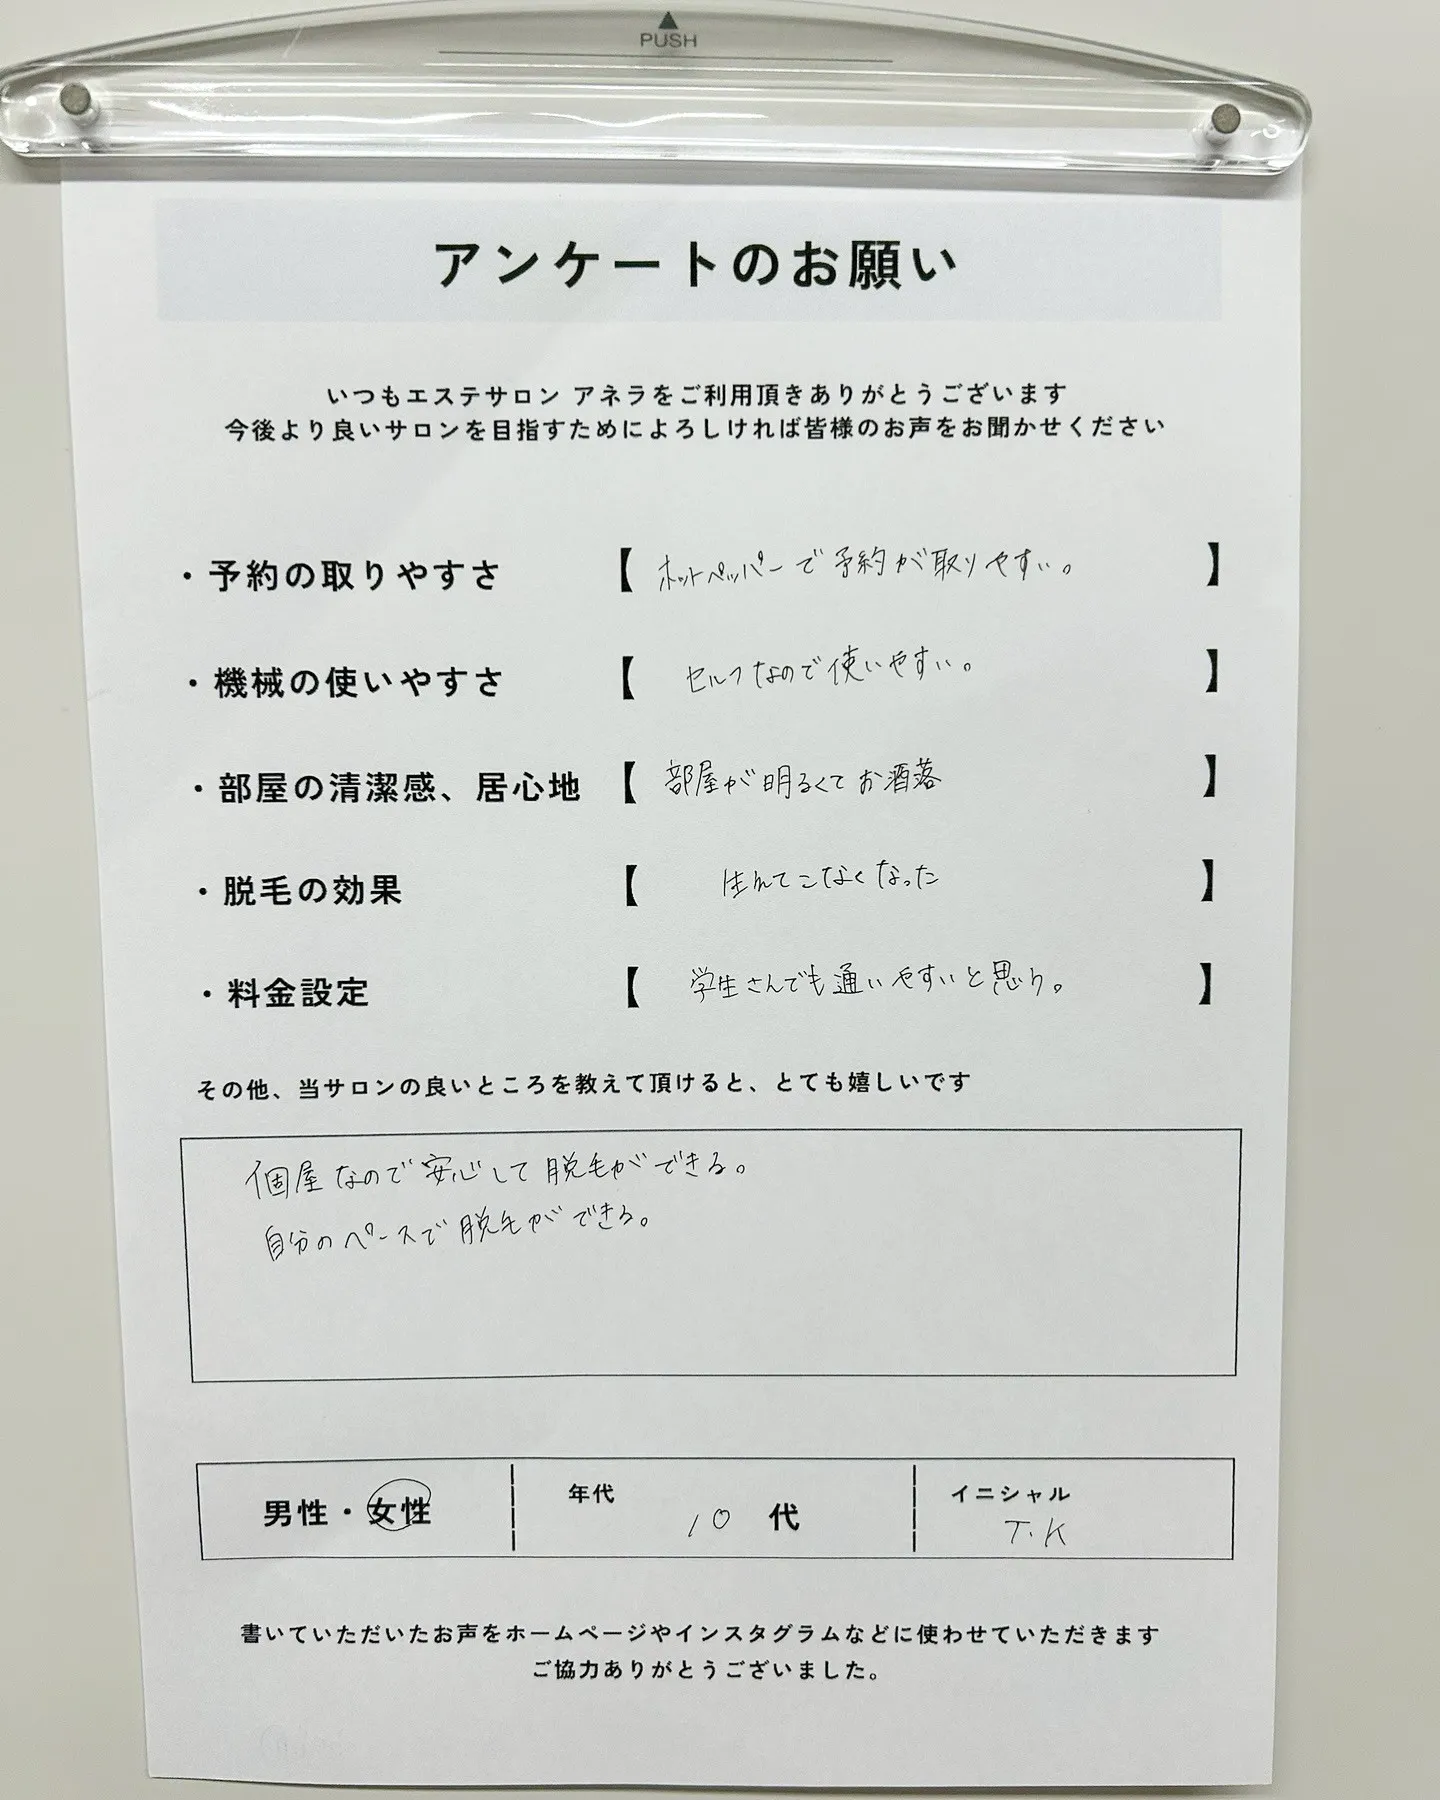 ▲
PUSH
アンケートのお願い
いつもエステサロン アネラをご利用頂きありがとうございます
今後より良いサロンを目指すためによろしければ皆様のお声をお聞かせください
・予約の取りやすさ 【 ホットペッパーで予約が取りやすい。 】
・機械の使いやすさ 【 セルフなので使いやすい。 】
・部屋の清潔感、居心地 【 部屋が明るくてお洒落 】
・脱毛の効果 【 生えてこなくなった 】
・料金設定 【 学生さんでも通いやすいと思う。 】
その他、当サロンの良いところを教えて頂けると、とても嬉しいです
個屋なので安心して脱毛ができる。
自分のペースで脱毛ができる。
男性・女性 年代 10 代 イニシャル T.K
書いていただいたお声をホームページやインスタグラムなどに使わせていただきます
ご協力ありがとうございました。